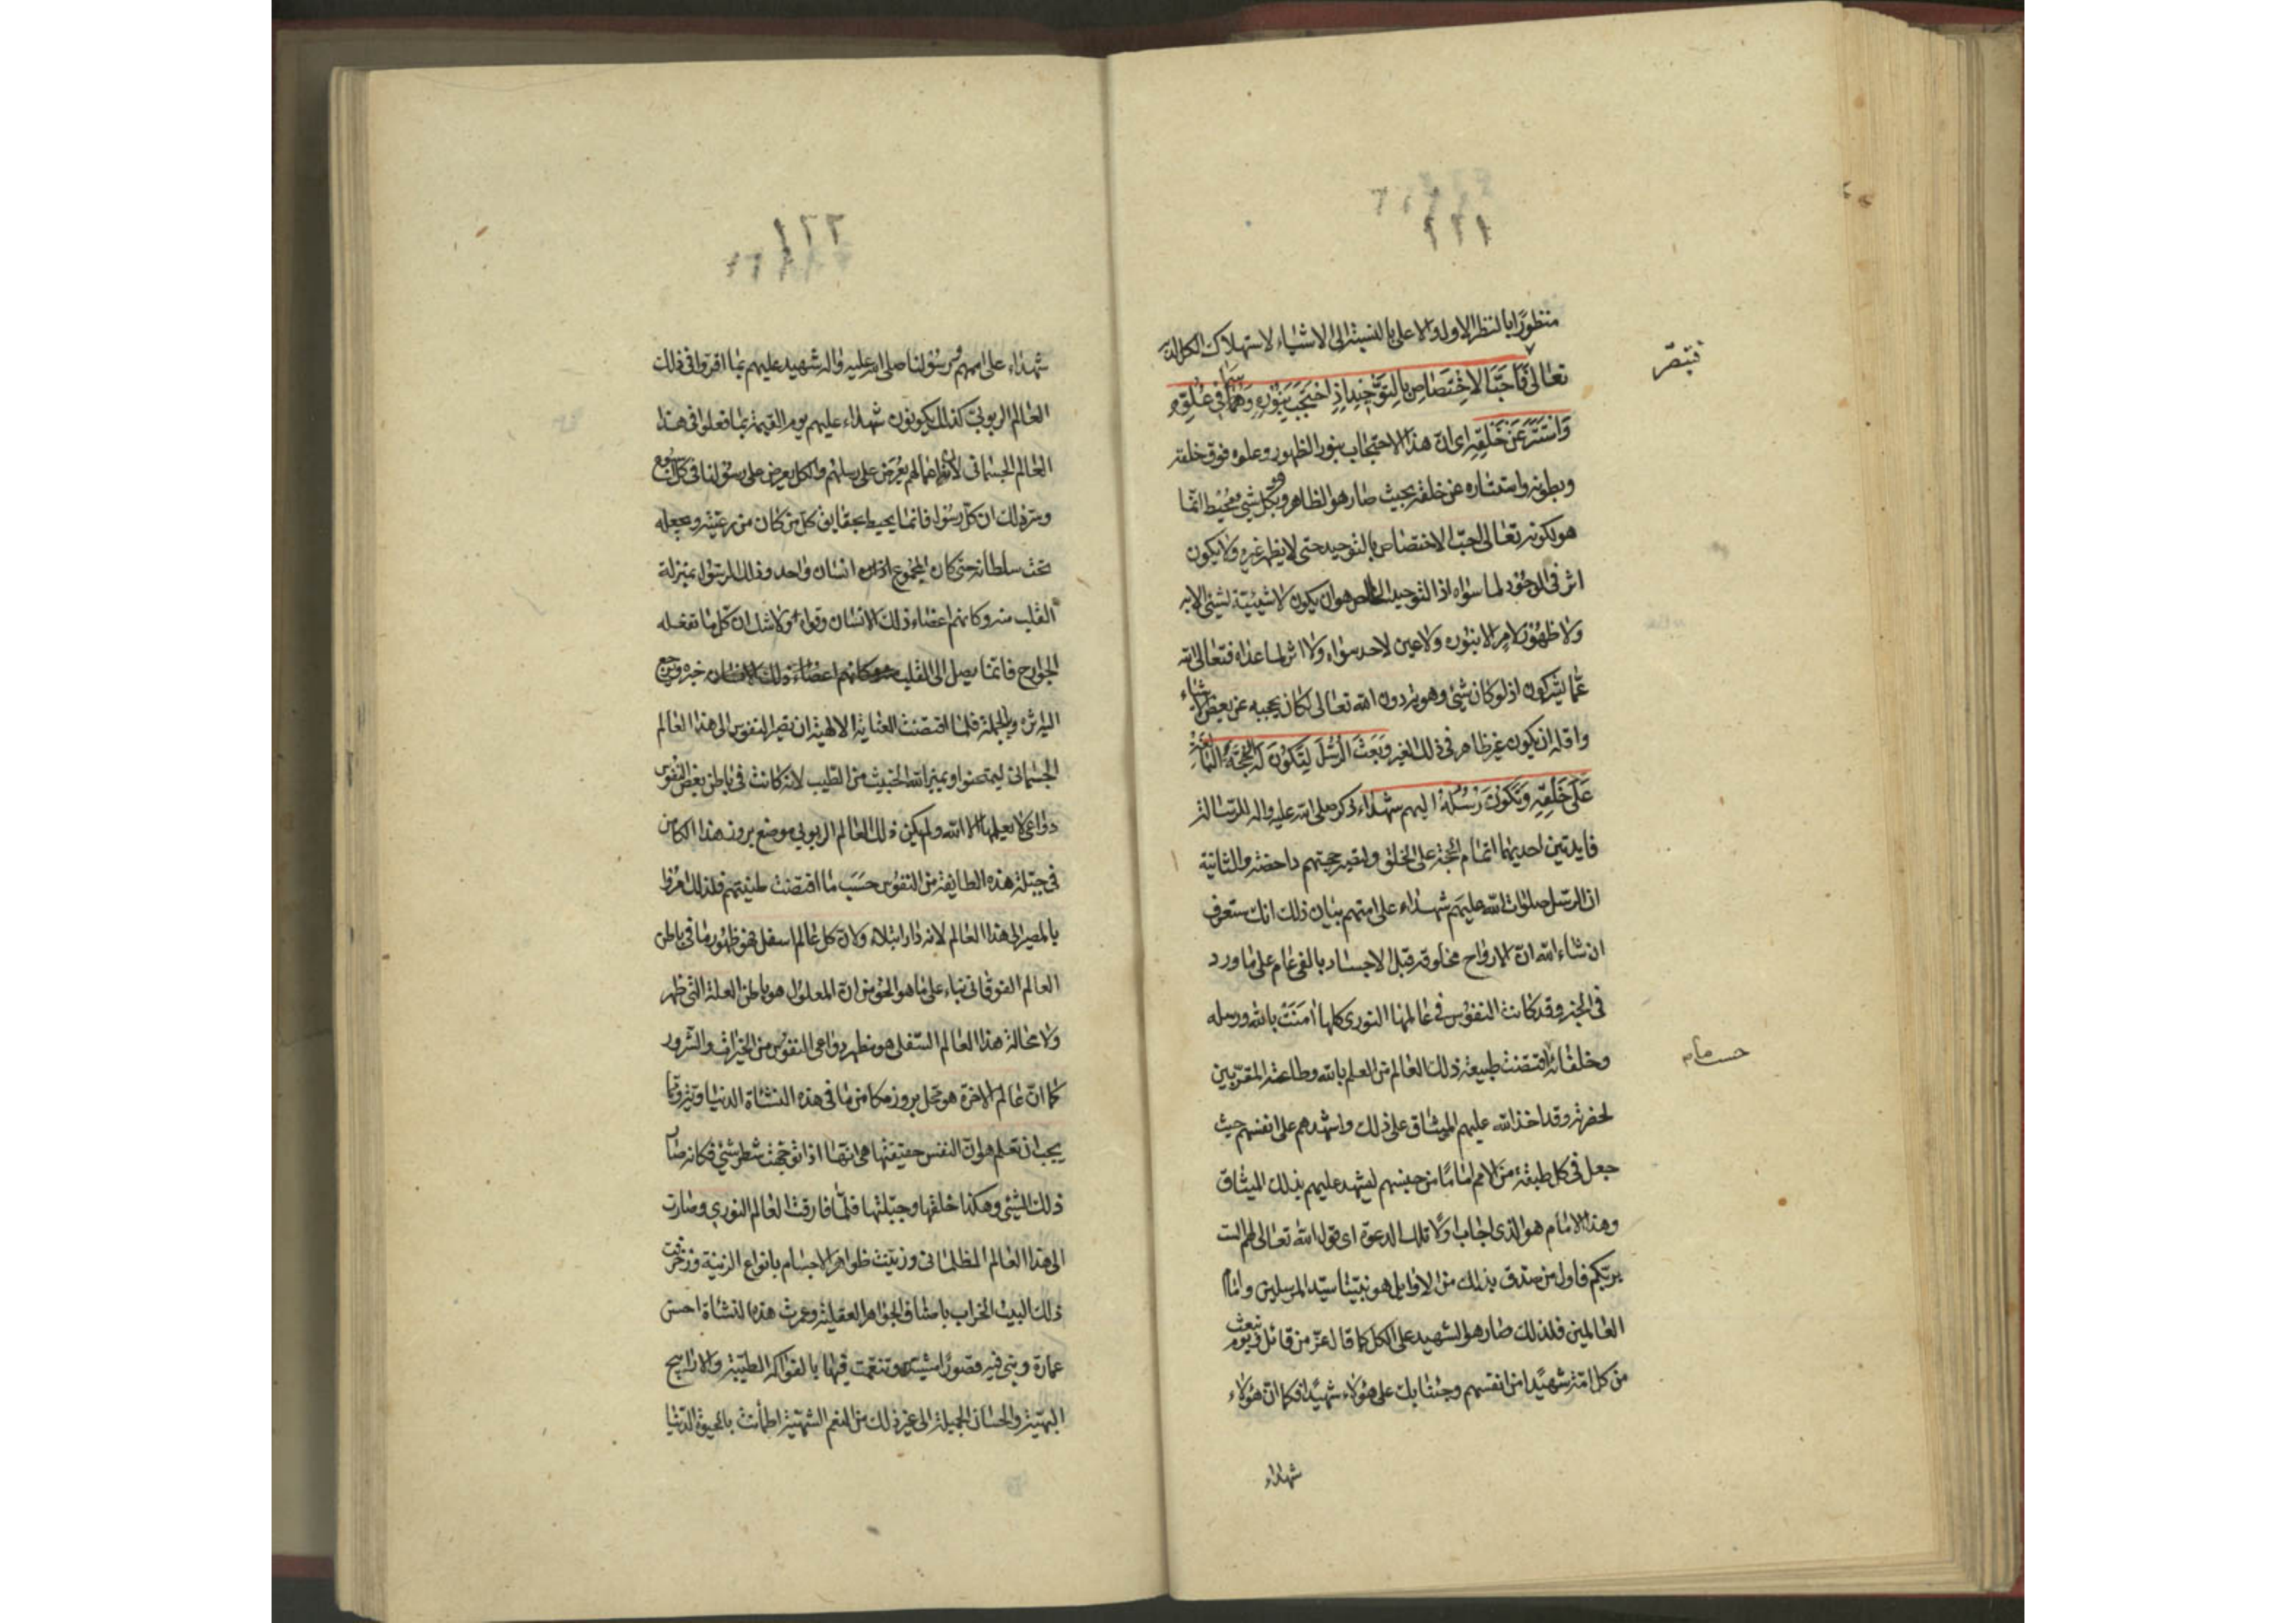 ١٢١
منظورًا بالنظر الاولى والاعلى بالنسبة الى الاشياء لاستهلاك الكل لديه
فتبصّر
تعالى فَاَحَبَّ الاِخْتِصَاصَ بِالتَوْحِيدِ اِذِ احْتَجَبَ بِنُوْرِهِ وَسَمَا فِي عُلُوِّهِ
وَاسْتَتَرَ عَنْ خَلْقِهِ اى ان هذا الاحتجاب بنور الظهور وعلوه فوق خلقه
وبطونه واستتاره عن خلقه بحيث صار هو الظاهر وبكل شئ محيط انما
هو لكونه تعالى احبّ الاختصاص بالتوحيد حتى لا يظهر غيره ولا يكون
اثر في الوجود لما سواه اذ التوحيد الخالص هو ان يكون لا شيئية لشئ الا به
ولا ظهور لامر الا بنوره ولا عين لاحد سواه ولا اثر لما عداه فتعالى الله
عمّا يشركون اذ لو كان شئ وهو من دون الله تعالى لكان يحجبه عن بعض الاشياء
واقله ان يكون غير ظاهر فى ذلك الغير وَبَعَثَ الرُّسُلَ لِتَكُوْنَ لَهُ الْحُجَّةُ الْبَالِغَةُ
عَلَى خَلْقِهِ وَتَكُوْنَ رُسُلُهُ اليهم شهداء ذكر صلى الله عليه واله للرسالة
فايدتين احديهما اتمام الحجة على الخلق وحجتهم داحضة والثانية
ان الرسل صلوات الله عليهم شهداء على امتهم بيان ذلك انك ستعرف
ان شاء الله ان الارواح مخلوقة قبل الاجساد بالفى عام على ما ورد
فى الخبر وقد كانت النفوس فى عالمها النورى كلها امنت بالله ورسله
وخلفائه اقتضت طبيعة ذلك العالم من العلم بالله وطاعة المقربين
لحضرته وقد اخذ الله عليهم الميثاق على ذلك واشهدهم على انفسهم حيث
جعل فى كل طبقة من الامم امامًا من جنسهم ليشهد عليهم بذلك الميثاق
وهذا الامام هو الذى اجاب اولا تلك الدعوة اى قول الله تعالى لهم الست
بربكم فاول من صدق بذلك من الاوايل هو نبيّنا سيّد المرسلين وامام
العالمين فلذلك صار هو الشهيد على الكل كما قال عزّ من قائل ويوم نبعث
من كل امة شهيدًا من انفسهم وجئنا بك على هؤلاء شهيدًا فكما ان هؤلاء
شهداء
١٢٢
شهداء على اممهم ورسولنا صلى الله عليه واله شهيد عليهم بما اقروا فى ذلك
العالم الربوبى كذلك يكونون شهداء عليهم يوم القيمة بما فعلوا فى هذا
العالم الجسمانى لان اعمالهم يعرض على رسلهم والكل يعرض على رسولنا فى كل اسبوع
وسر ذلك ان كل رسول فانما يحيط بحقايق كل من كان من رعيته وجعله
تحت سلطانه حتى كان المجموع انسان واحد وذلك الرسول بمنزلة
القلب منه وكانهم اعضاء ذلك الانسان وقواه ولا شك ان كل ما تفعله
الجوارح فانما يصل الى القلب خبره ويرجع
اليه اثره وبالجملة فلما اقتضت العناية الالهية ان تصير النفوس الى هذا العالم
الجسمانى ليمتحنوا ويميز الله الخبيث من الطيب لانه كانت فى باطن بعض النفوس
دواعى لا يعلمها الا الله ولم يكن ذلك العالم الربوبى موضع بروز هذا الكامن
فى جبلة هذه الطايفة من النفوس حسب ما اقتضت طينتهم فلذلك امروا
بالمصير الى هذا العالم لانه دار ابتلاء ولان كل عالم اسفل فهو ظهور ما فى باطن
العالم الفوقانى بناء على ما هو الحق من ان المعلول هو باطن العلة التى ظهر
ولا محالة هذا العالم السفلى هو مظهر دواعى النفوس من الخيرات والشرور
كما ان عالم الاخرة هو محل بروز مكامن ما فى هذه النشاة الدنيا
يجب ان تعلم هو ان النفس حقيقتها هى انها اذا توجهت شطر شئ فكانه صار
ذلك الشئ وهكذا خلقها وجبلتها فلمّا فارقت العالم النورى وصارت
الى هذا العالم الظلمانى وزينت ظواهر الاجسام بانواع الزينة وزخرفت
ذلك البيت الخراب باصناف الجواهر العقلية وعمرت هذه النشاة احسن
عمارة وبنى فيه قصورًا مشيدة وتنعمت فيها بالفواكه الطيبة والاراييح
البهية والحسان الجميلة الى غير ذلك من النعم الشهية اطمأنت بالحيوة الدنيا